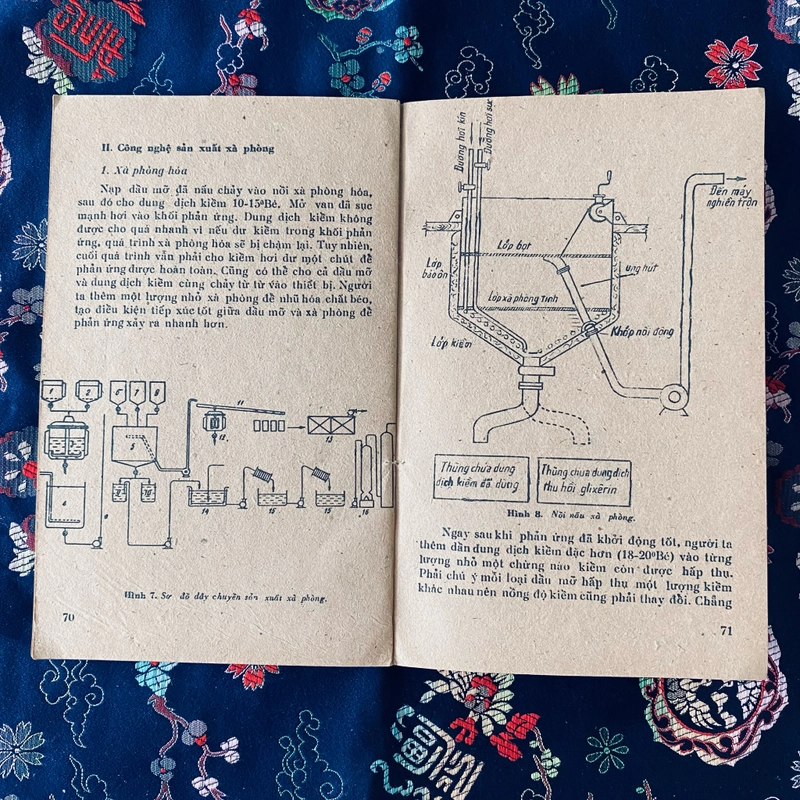 II. Công nghệ sản xuất xà phòng
1. Xà phòng hóa
Nạp dầu mỡ đã nấu chảy vào nồi xà phòng hóa,
sau đó cho dung dịch kiềm 10-15ºBé. Mở van đã sục
mạnh hơi vào khối phản ứng. Dung dịch kiềm không
được cho quá nhanh vì nếu dư kiềm trong khối phản
ứng, quá trình xà phòng hóa sẽ bị chậm lại. Tuy nhiên,
cuối quá trình vẫn phải cho kiềm hơi dư một chút để
phản ứng được hoàn toàn. Cũng có thể cho cả dầu mỡ
và dung dịch kiềm cùng chảy từ từ vào thiết bị. Người
ta thêm một lượng nhỏ xà phòng để nhũ hóa chất béo,
tạo điều kiện tiếp xúc tốt giữa dầu mỡ và xà phòng để
phản ứng xảy ra nhanh hơn.
1 2 6 7 8
11
12
13
5
4
9
14 15 15 16
Hình 7. Sơ đồ dây chuyền sản xuất xà phòng.
70
Đường hơi kín
Đường hơi sục
Đến máy
nghiền trộn
Lớp bọt
Lớp
bảo ôn
ung hút
Lớp xà phòng tinh
Khớp nối động
Lớp kiềm
Thùng chứa dung
dịch kiềm đã dùng
Thùng chứa dung dịch
thu hồi glixêrin
Hình 8. Nồi nấu xà phòng.
Ngay sau khi phản ứng đã khởi động tốt, người ta
thêm dần dung dịch kiềm đặc hơn (18-20ºBé) vào từng
lượng nhỏ một chừng nào kiềm còn được hấp thụ.
Phải chú ý mỗi loại dầu mỡ hấp thụ một lượng kiềm
khác nhau nên nồng độ kiềm cũng phải thay đổi. Chẳng
71